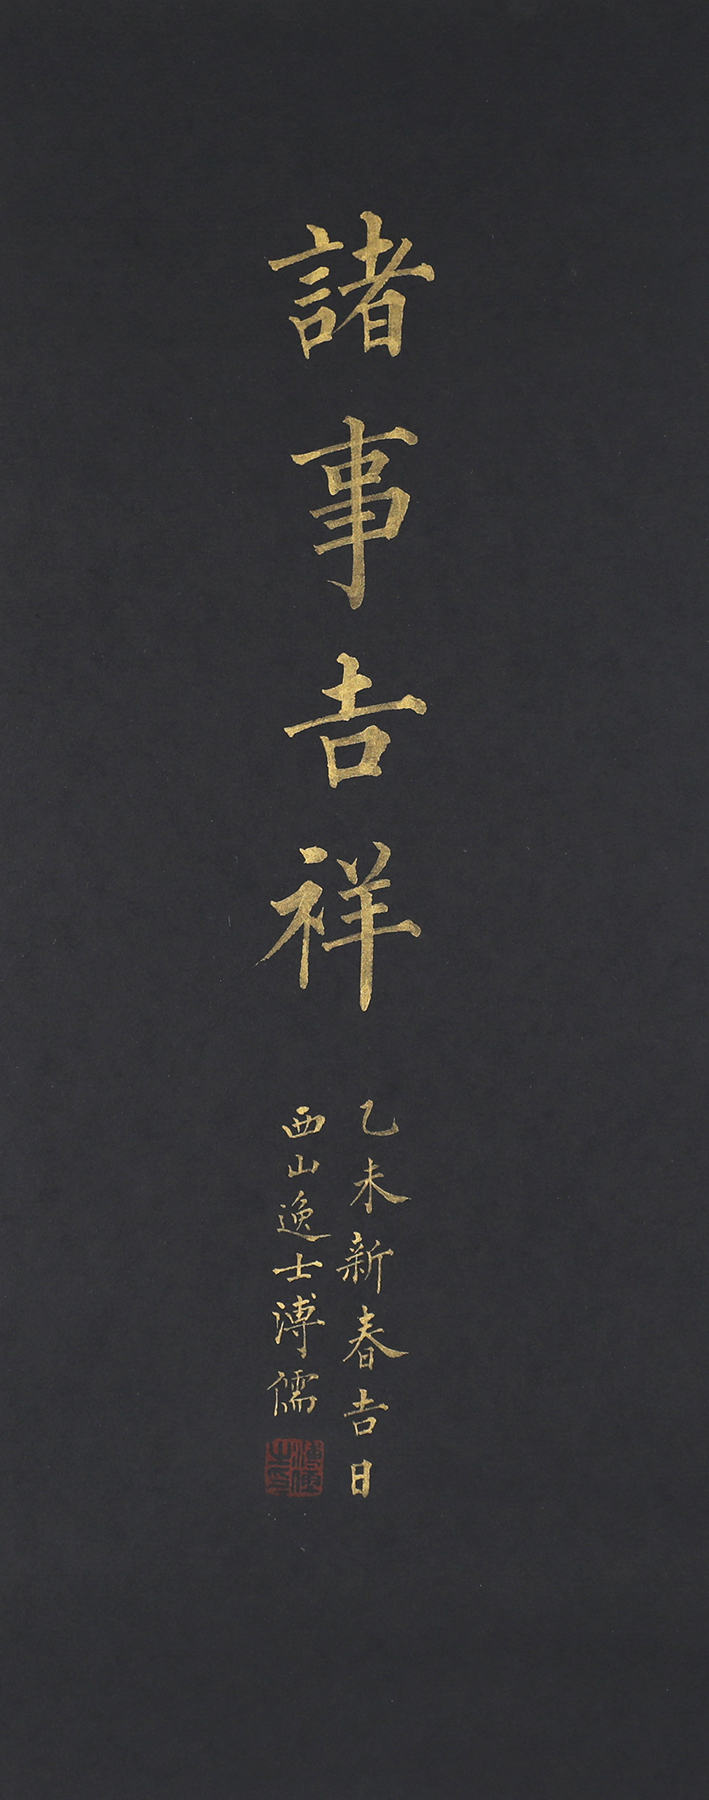 諸事吉祥
乙未新春吉日
西山逸士溥儒
溥儒之印